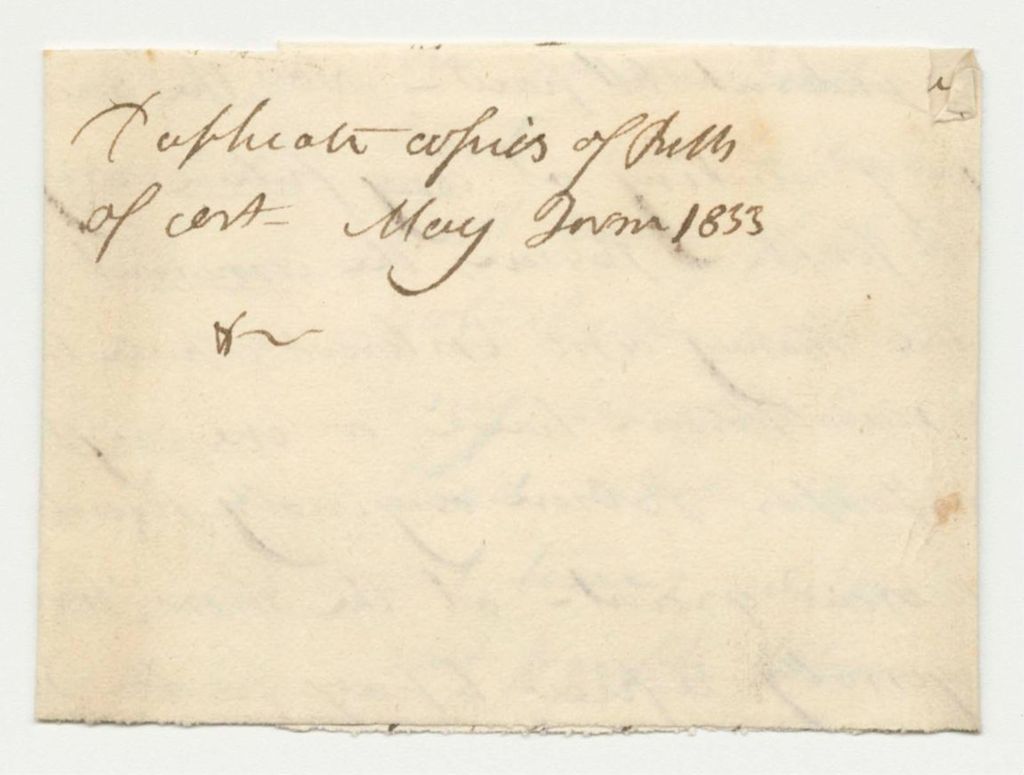 Duplicate copies of Bills
of cost May Term 1833